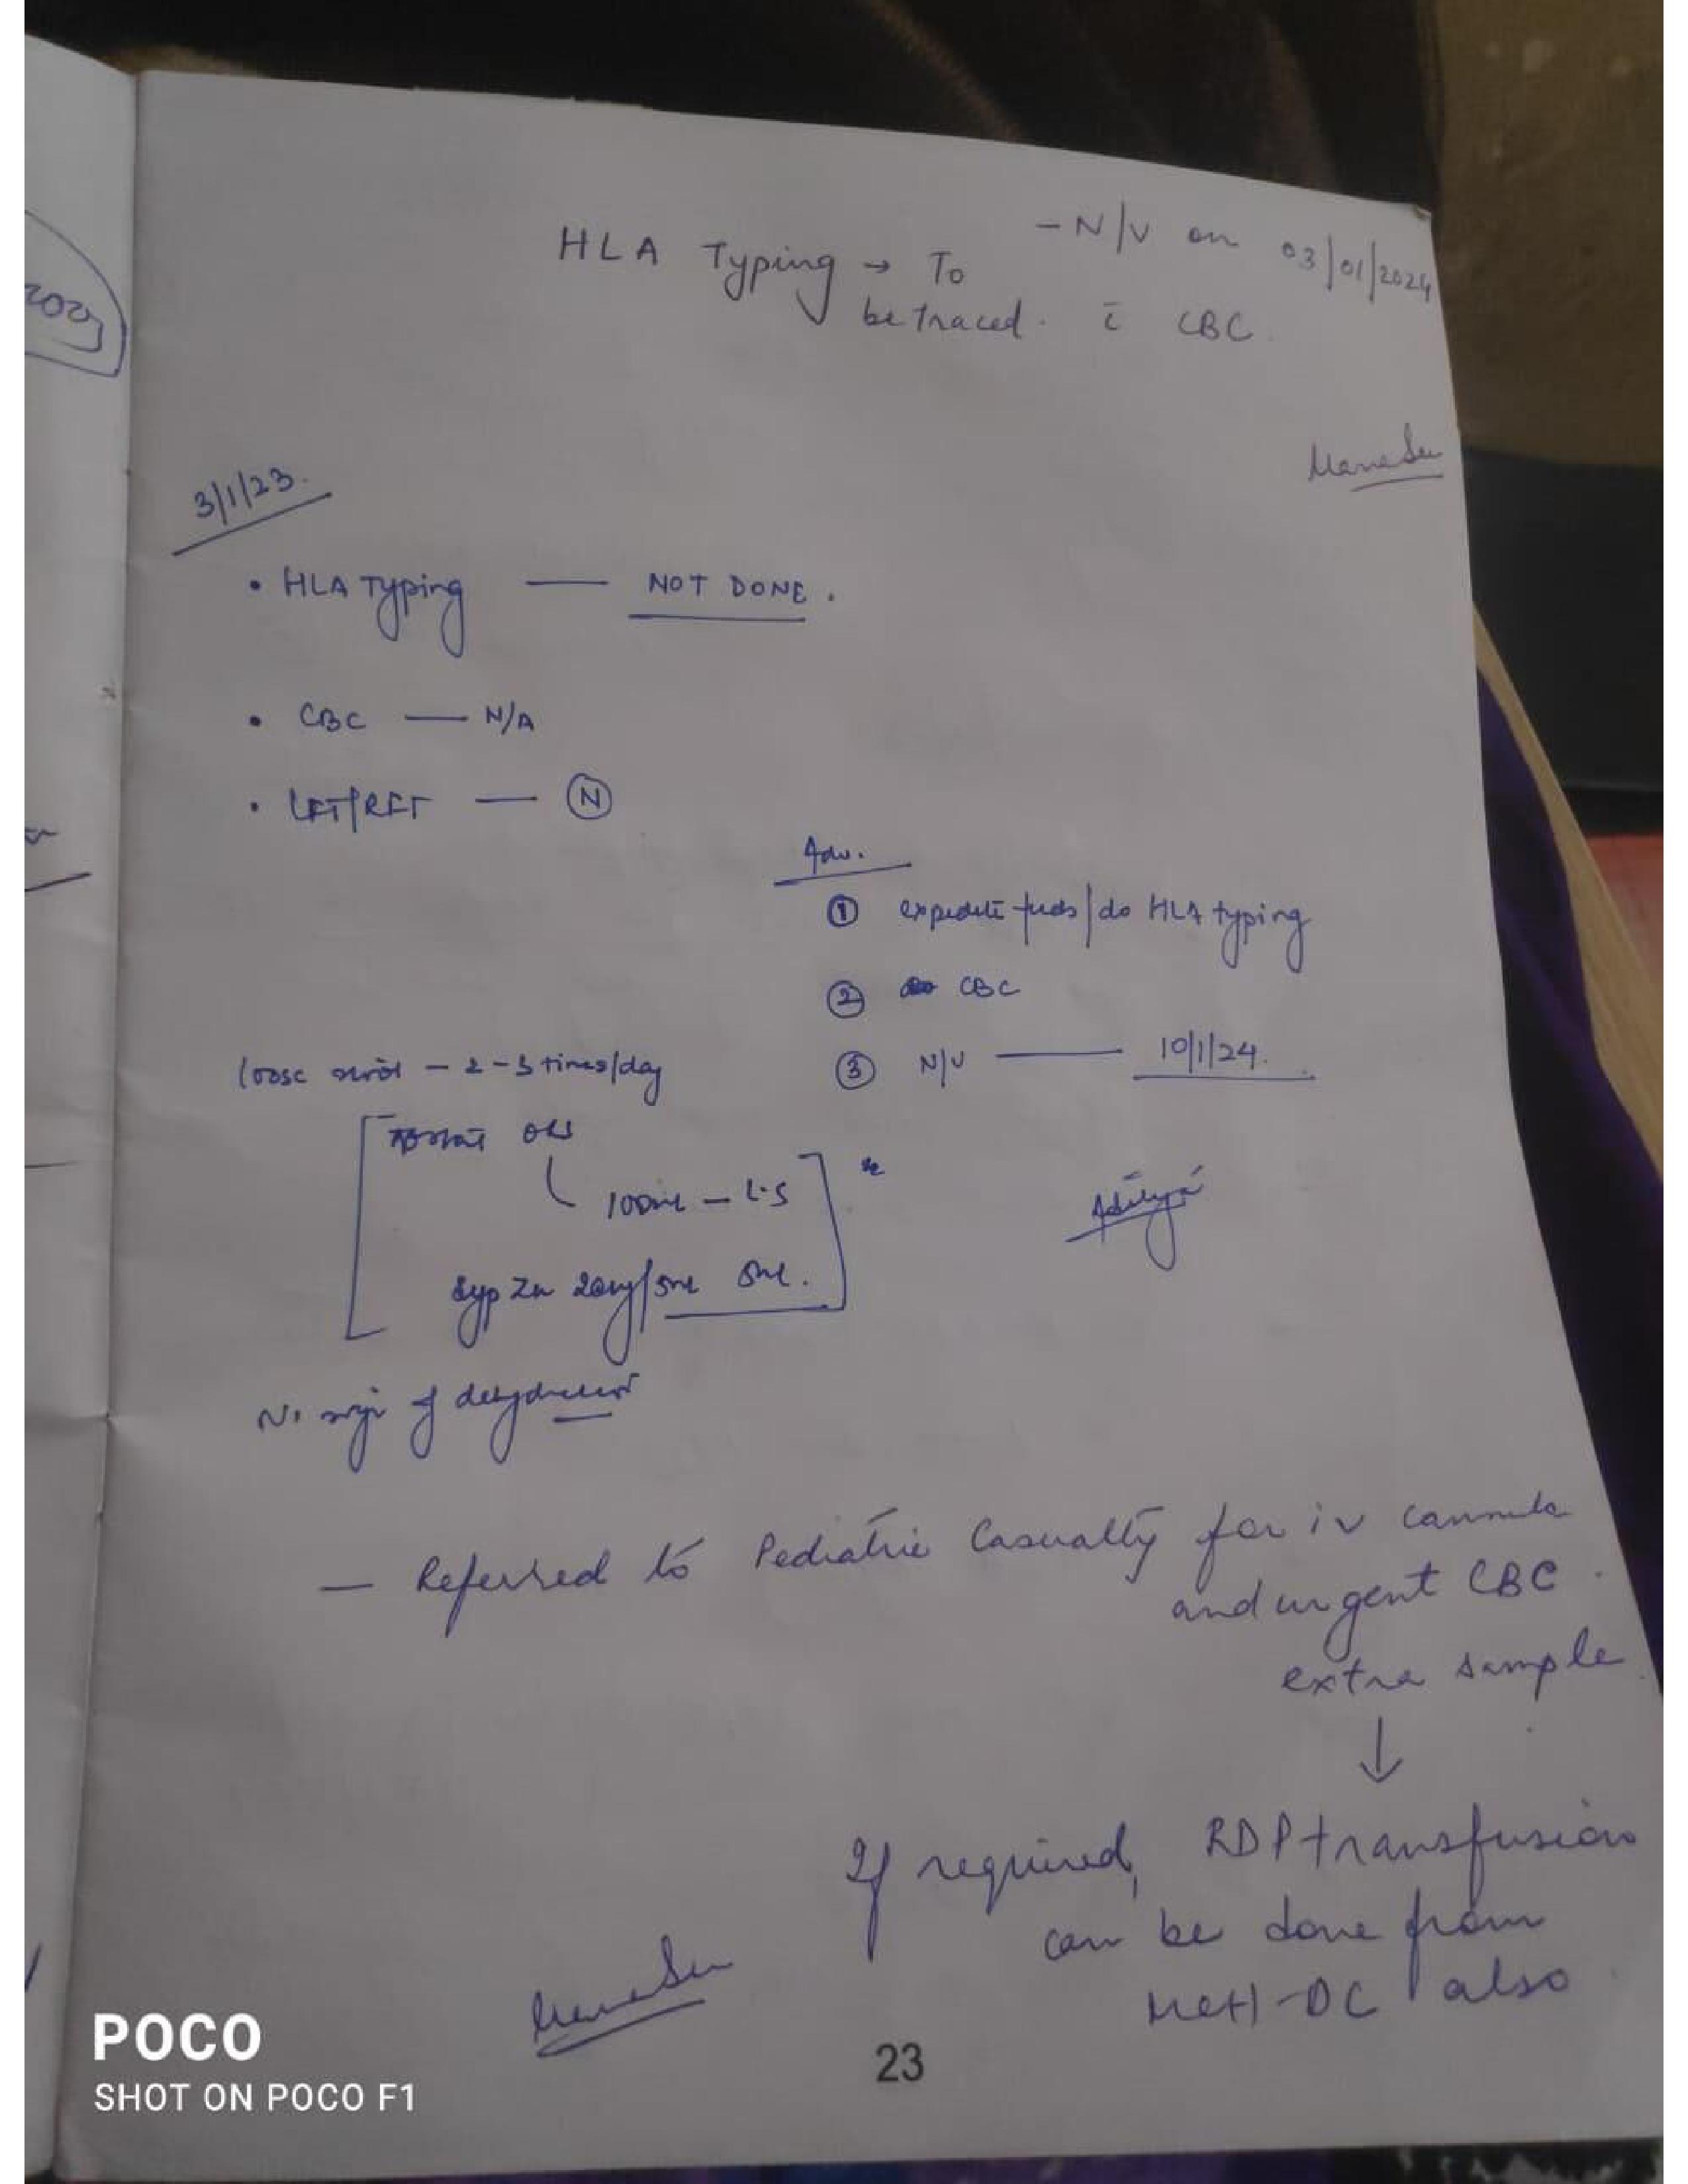 - N/V on 03/01/2024
HLA Typing → To
be traced. c̄ CBC
3/1/23.
• HLA Typing — NOT DONE.
• CBC — N/A
• LFT/RFT — Ⓝ
Adv.
① expedite / do HLA typing
② CBC
③ N/V — 10/1/24.
loose - 2-3 times/day
ORS
100ml - L.S
Syp Zn 20mg/5ml 5ml.
No sign of dehydration
Aditya
— Referred to Pediatric Casualty for iv cannula
and urgent CBC.
extra sample
↓
If required, RDP transfusion
can be done from
-DC also
23
POCO
SHOT ON POCO F1